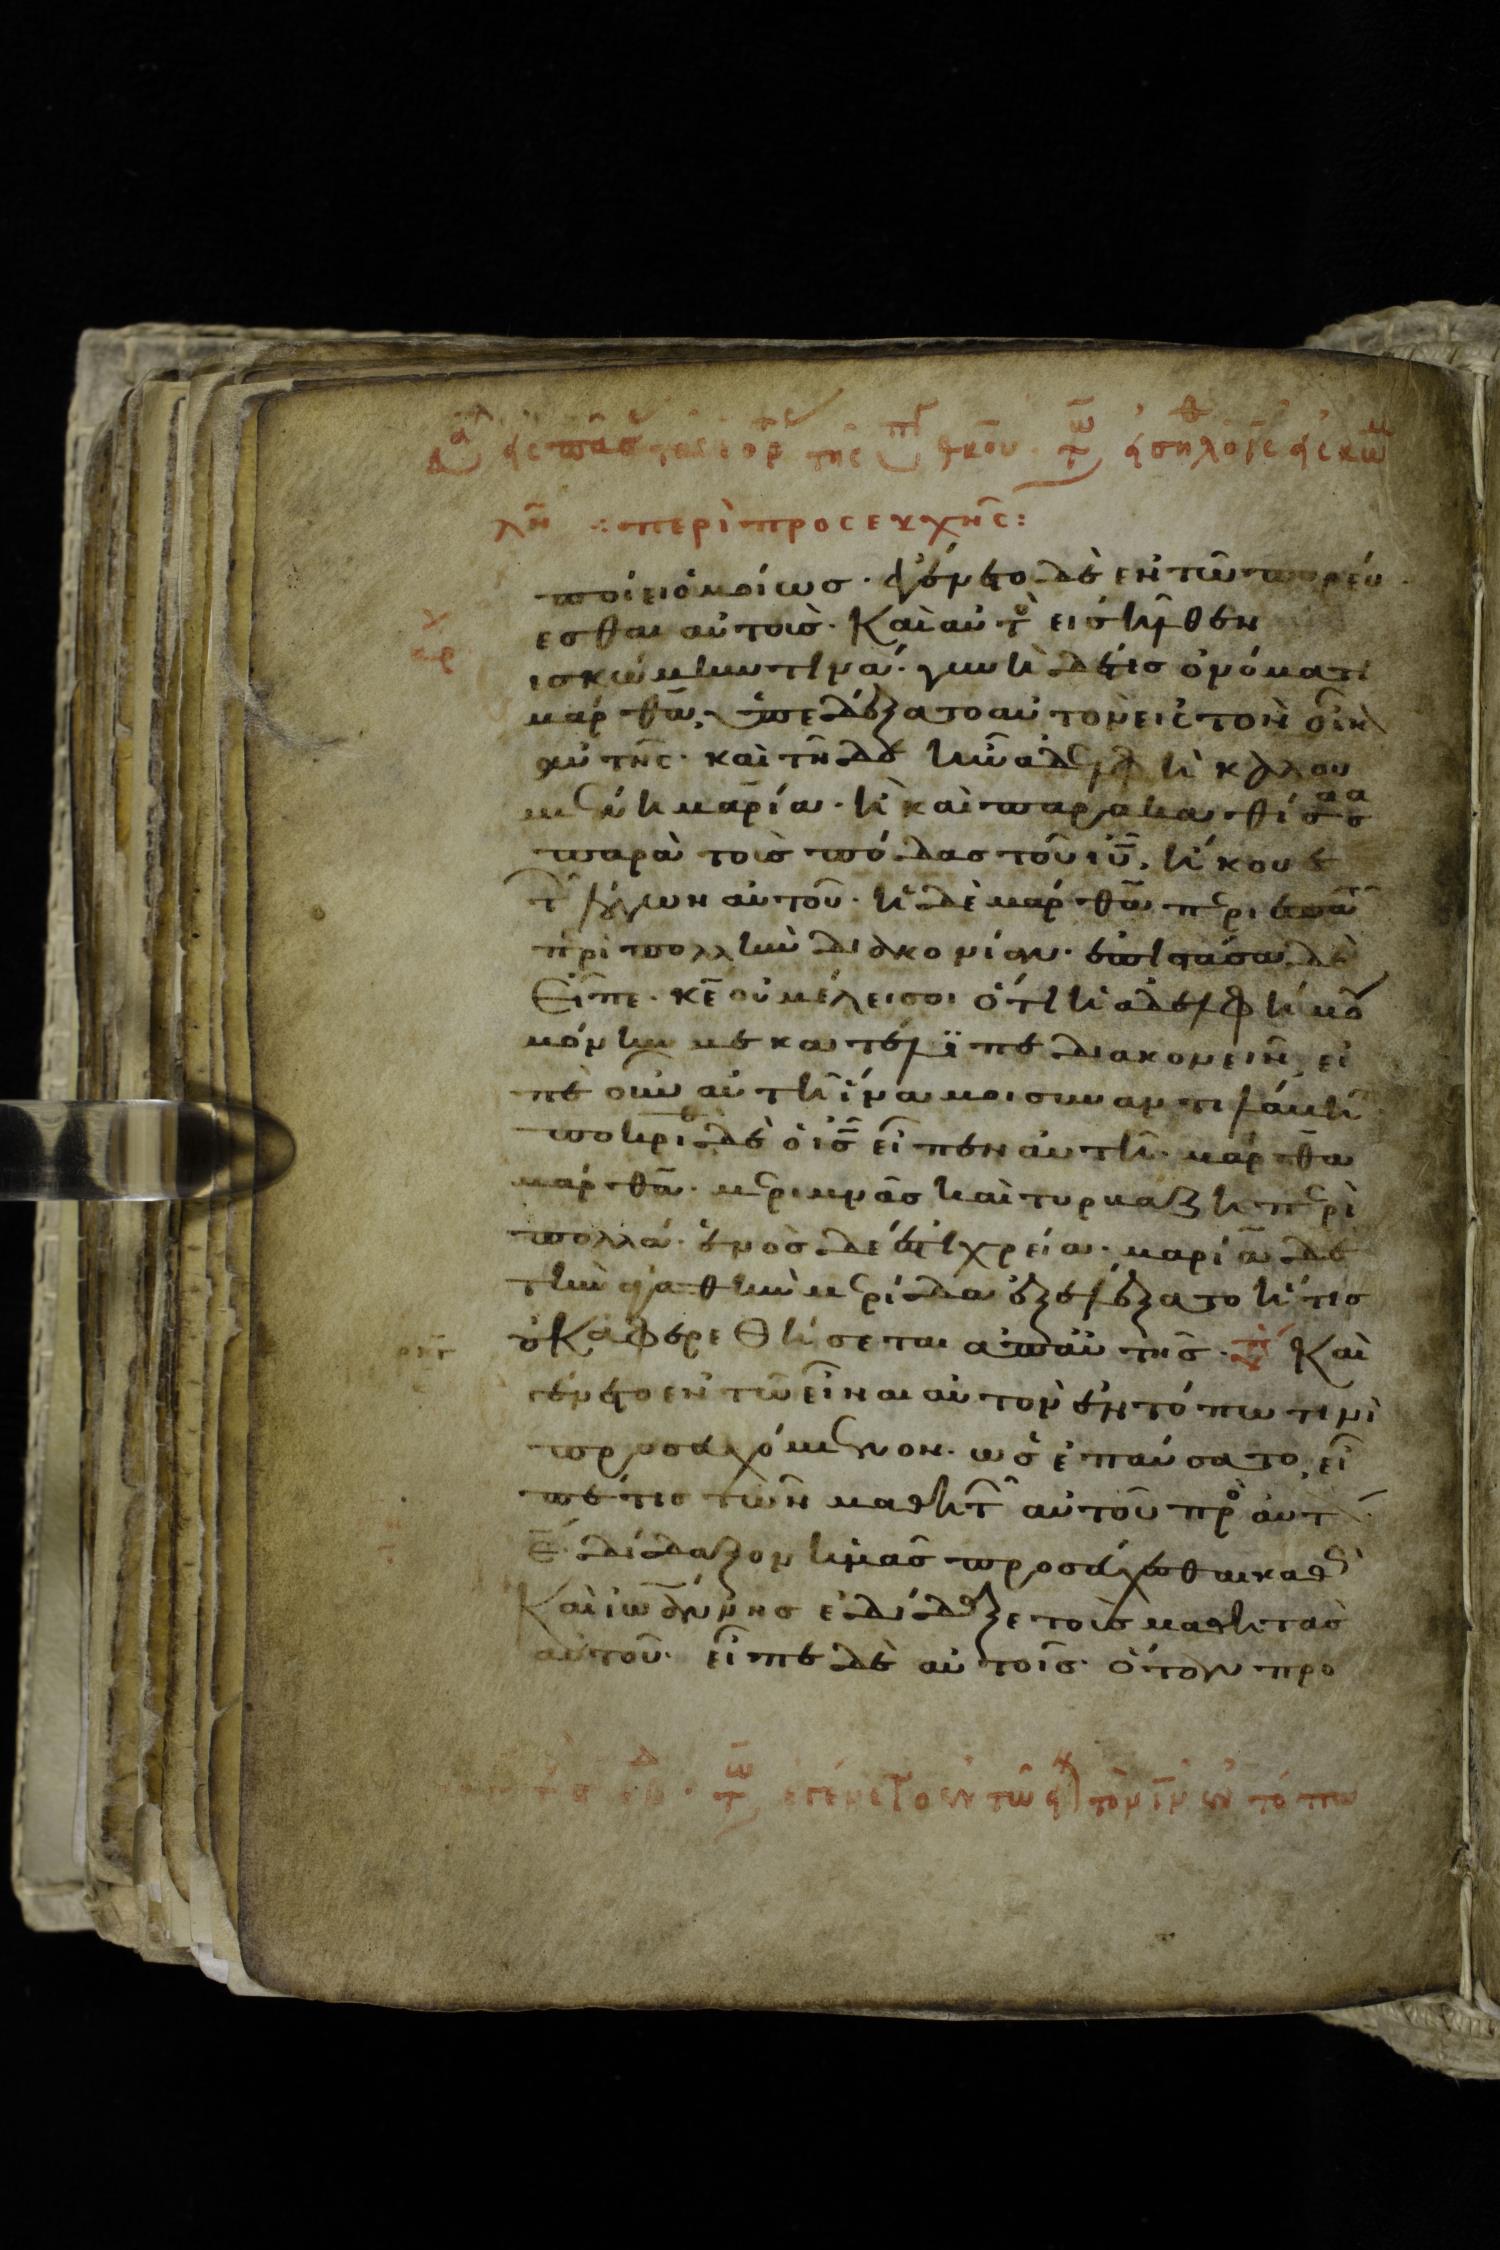 περὶ προσευχῆς:
ποίει ὁμοίως. ἐγένετο δὲ ἐν τῶ πορεύ
εσθαι αὐτοὺς. Καὶ αὐτὸ εισῆλθεν
ισ κώμην τινά. γυνὴ δέ τισ ὀνόματι
μάρθα, ὑπεδέξατο αὐτὸν εἰς τὸν οἶκ
αὐτῆς. καὶ τῆδε ἦν ἀδελφὴ καλου
μένη μαρία. ἣ καὶ παρακαθίσασα
παρὰ τοὺσ πόδας τοῦ ιῦ, ἤκουε
τ λόγων αὐτοῦ. ἡ δὲ μάρθα περιεσπᾶτ
περὶ πολλὴν διακονίαν. ἐπιστᾶσα δὲ
Εἶπε. κε οὐ μέλει σοι ὅτι ἡ ἀδελφή μου
μόνην με κατέλιπε διακονεῖν, εἰ
πὲ οὖν αὐτῆ ἵνα μοι συναντιλάβη
δὲ ὁ ις εἶπεν αὐτῆ. μάρθα
μάρθα. μεριμνᾶς καὶ τυρβάζη περὶ
πολλά. ἑνὸς δέ ἐστι χρεία. μαρία δὲ
τὴν ἀγαθὴν μερίδα ἐξελέξατο ἥτις
οὐκ ἀφερεθήσεται ἀπ αὐτῆς. Καὶ
ἐγένετο ἐν τῶ εἶναι αὐτὸν ἐν τόπω τινὶ
προσευχόμενον. ὡς ἐπαύσατο, εἶ
πέ τις τῶν μαθητ αὐτοῦ πρὸ αὐτ
κε δίδαξον ἡμᾶς προσεύχεσθαι καθ
Καὶ ιω ἐδίδαξε τοὺς μαθητὰς
αὐτοῦ. εἶπε δὲ αὐτοῖς. ὅταν προ
ἐγένετο ἐν τῶ τὸν ιν ἐν τόπω